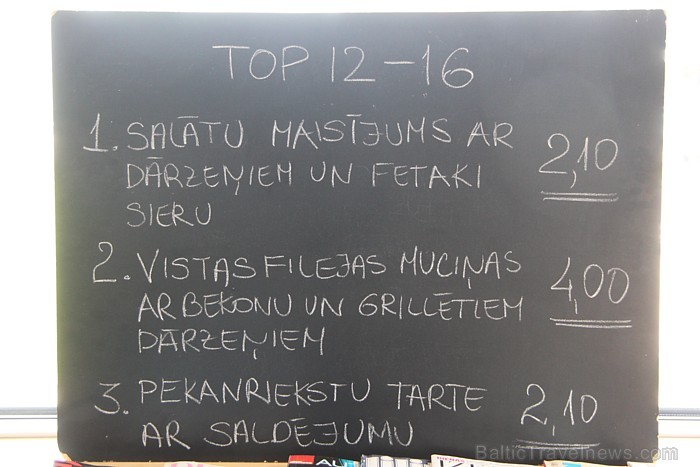 TOP 12-16
1. SALĀTU MAISĪJUMS AR 2,10
DĀRZEŅIEM UN FETAKI
SIERU
2. VISTAS FILEJAS MUCIŅAS 4,00
AR BEKONU UN GRILLĒTIEM
DĀRZEŅIEM
3. PEKANRIEKSTU TARTE 2,10
AR SALDĒJUMU
© BalticTravelnews.com